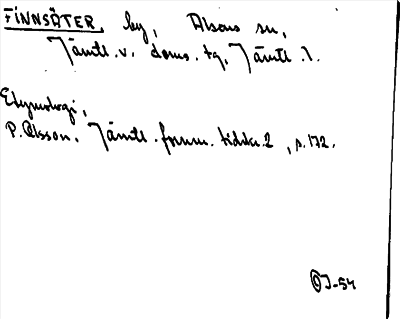 FINNSÄTER, by, Alsens sn,
Jämtl. v. doms. tg, Jämtl. l.
Etymologi,
P. Olsson. Jämtl. fornm. tidskr. 2, s. 172.
J-54